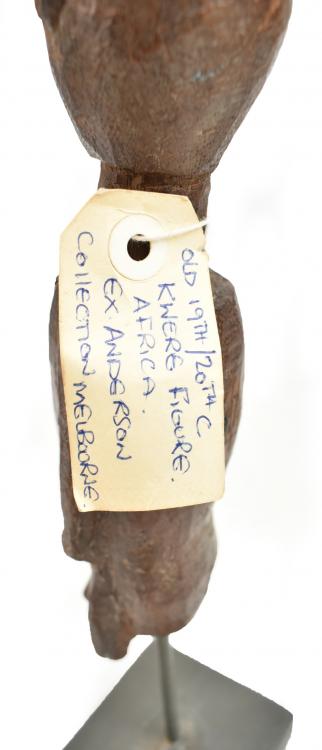 OLD 19TH/20TH C
KWERE FIGURE.
AFRICA.
EX. ANDERSON
COLLECTION MELBOURNE.